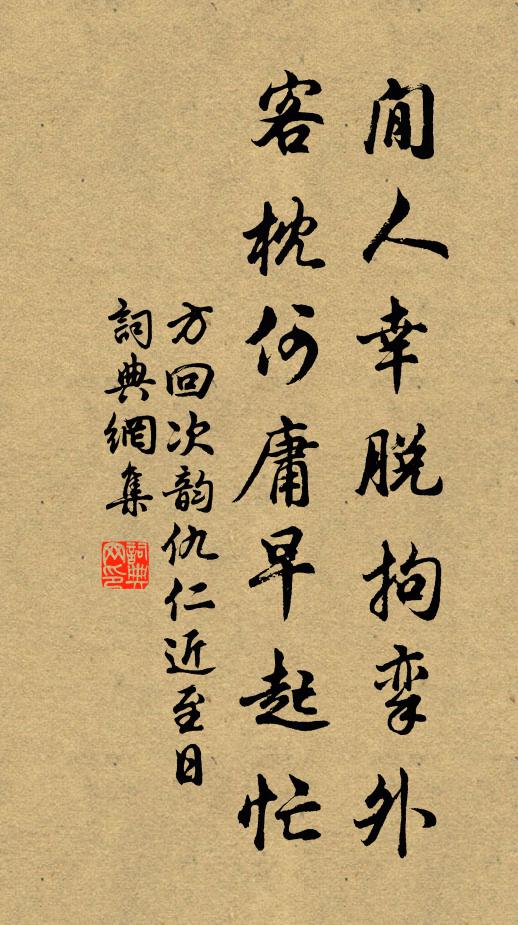 閒人幸脱拘挛外
客枕何庸早起忙
方回次韵仇仁近至日
詞典網集
詞典網印